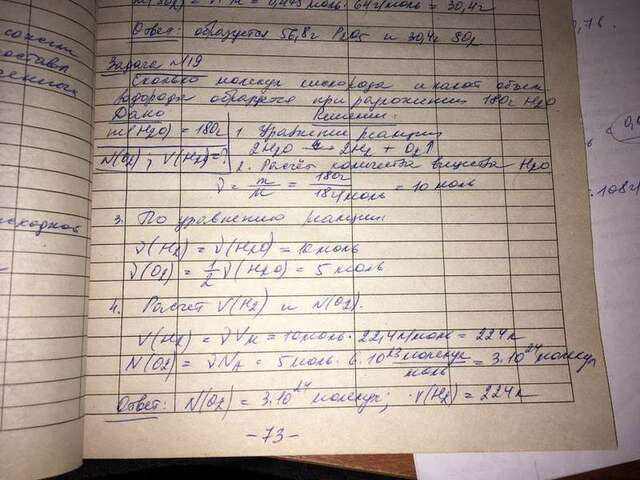 m(SO₂) = ν·M = 0,475 моль · 64 г/моль = 30,4г
Ответ: образуется 56,8г P₂O₅ и 30,4г SO₂
Задача №19
Сколько молекул кислорода и какой объем
водорода образуется при разложении 180г H₂O
Дано Решение:
m(H₂O) = 180г 1. Уравнение реакции
2H₂O 2H₂ + O₂↑
N(O₂), V(H₂) = ? 2. Расчёт количества вещества H₂O
ν = m/M = 180г/18г/моль = 10 моль
3. По уравнению реакции:
ν(H₂) = ν(H₂O) = 10 моль
ν(O₂) = 1/2 ν(H₂O) = 5 моль
4. Расчёт V(H₂) и N(O₂).
V(H₂) = νVм = 10 моль · 22,4 л/моль = 224 л
N(O₂) = νNA = 5 моль · 6·10²³ молекул/моль = 3·10²⁴ молекул
Ответ: N(O₂) = 3·10²⁴ молекул; V(H₂) = 224 л
-73-